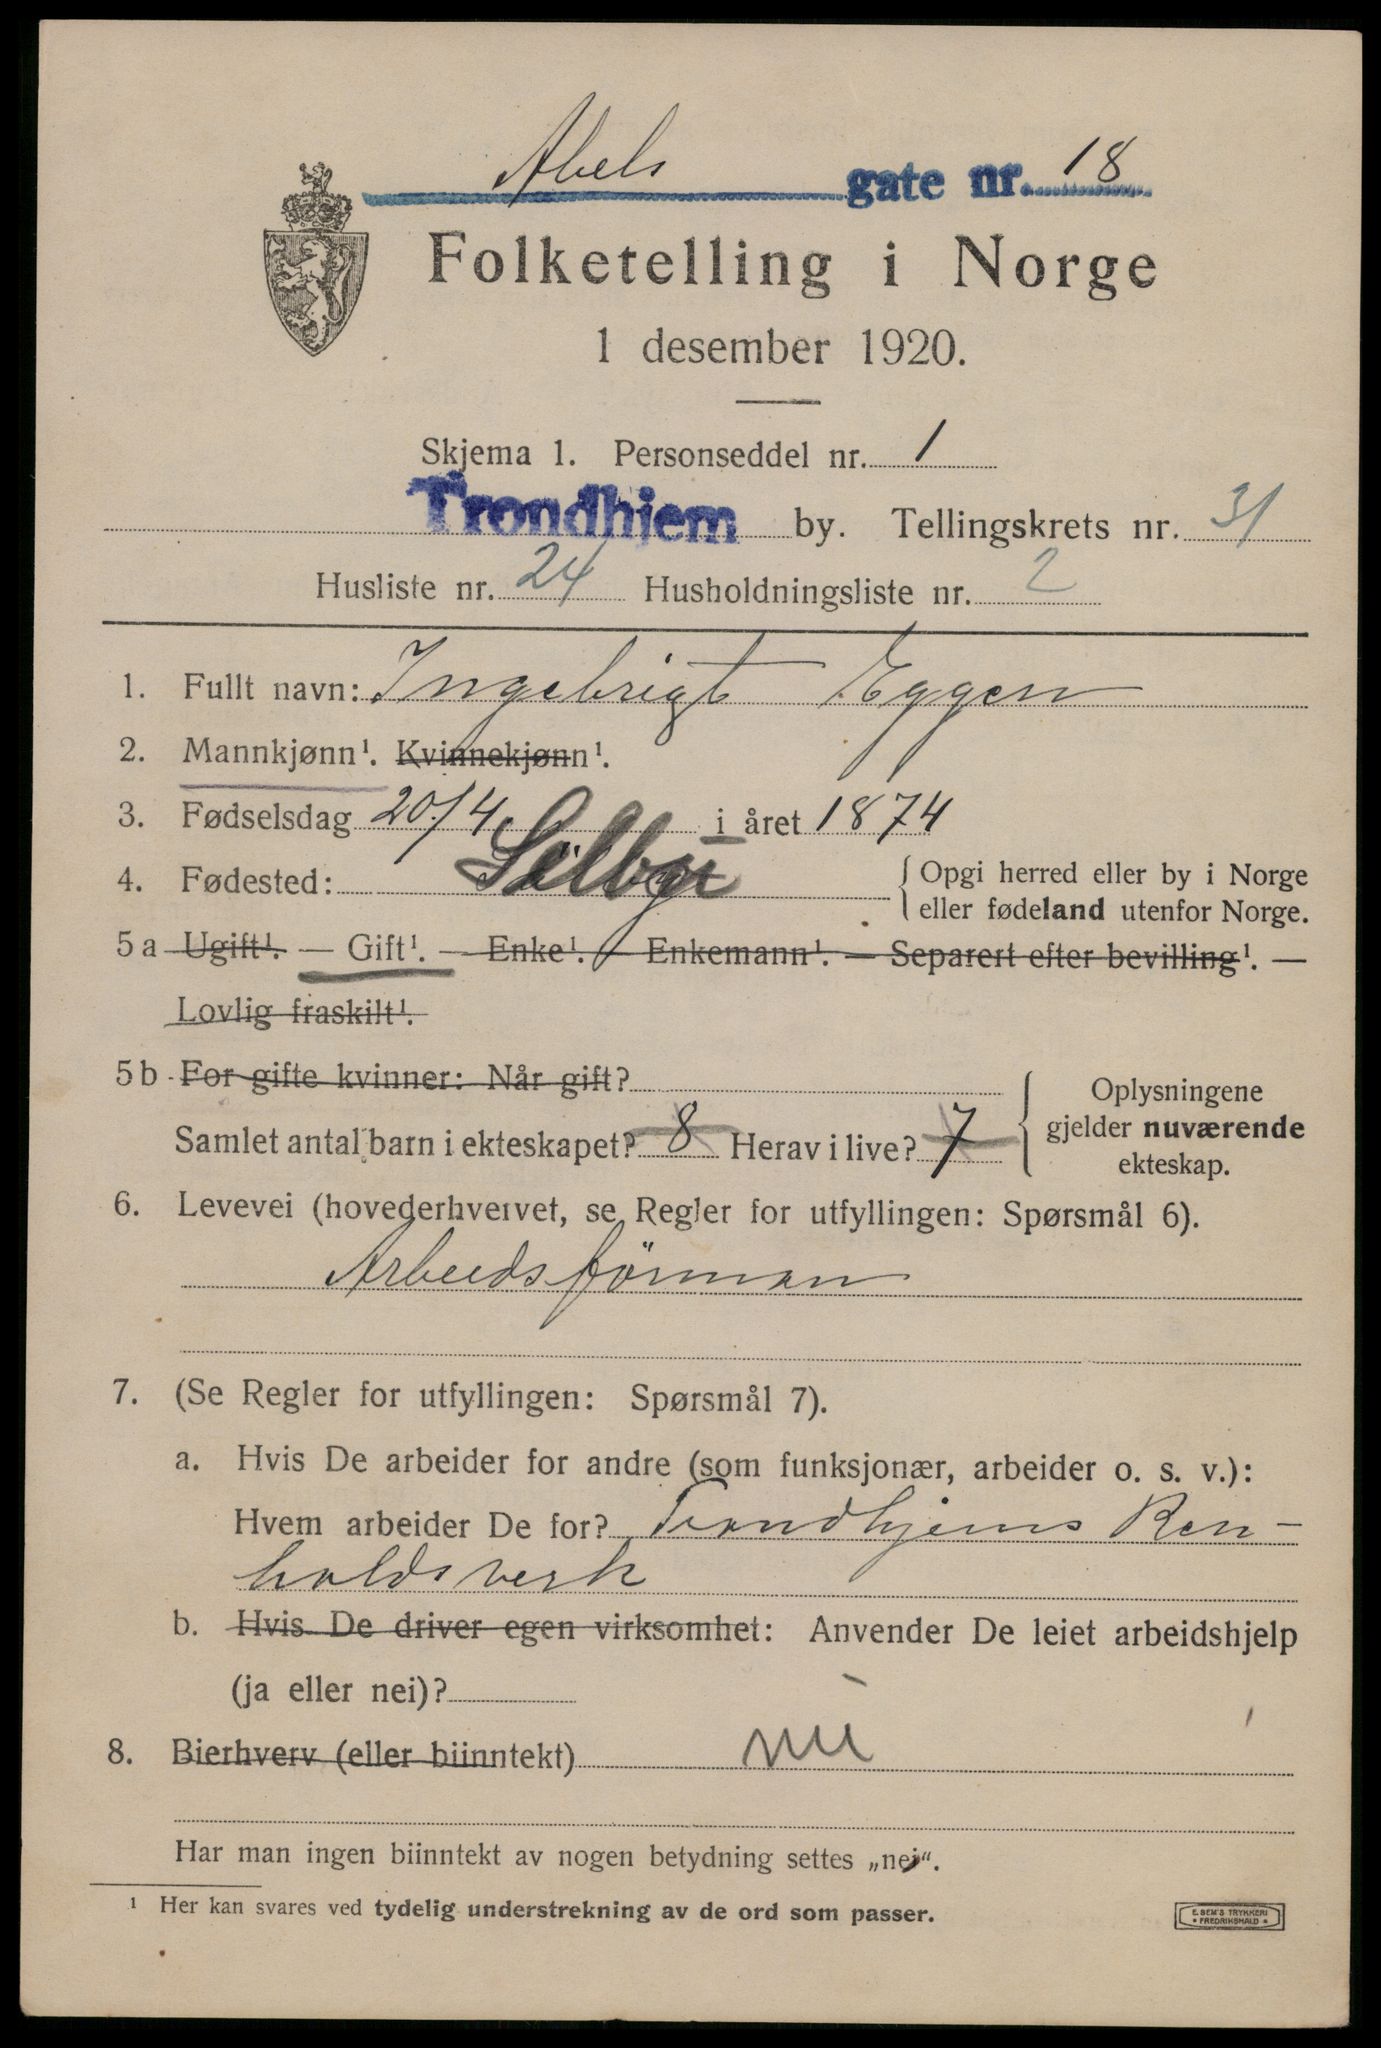 Abels gate nr. 18
Folketelling i Norge
1 desember 1920.
Skjema 1. Personseddel nr. 1
Trondhjem by. Tellingskrets nr. 31
Husliste nr. 24 Husholdningsliste nr. 2
1. Fullt navn: Ingebrigt Eggen
2. Mannkjønn¹. Kvinnekjønn¹.
3. Fødselsdag 20/4 i året 1874
4. Fødested: Selbu
{ Opgi herred eller by i Norge
eller fødeland utenfor Norge.
5a Ugift¹. — Gift¹. — Enke¹. — Enkemann¹. — Separert efter bevilling¹. —
Lovlig fraskilt¹.
5b For gifte kvinner: Når gift?
Samlet antal barn i ekteskapet? 8 Herav i live? 7
{ Oplysningene
gjelder nuværende
ekteskap.
6. Levevei (hovederhvervet, se Regler for utfyllingen: Spørsmål 6).
Arbeidsförman
7. (Se Regler for utfyllingen: Spørsmål 7).
a. Hvis De arbeider for andre (som funksjonær, arbeider o. s. v.):
Hvem arbeider De for? Trondhjems Ren-
holdsverk
b. Hvis De driver egen virksomhet: Anvender De leiet arbeidshjelp
(ja eller nei)?
8. Bierhverv (eller biinntekt) nei
Har man ingen biinntekt av nogen betydning settes „nei“.
¹ Her kan svares ved tydelig understrekning av de ord som passer.
E. SEM'S TRYKKERI
* FREDRIKSHALD *